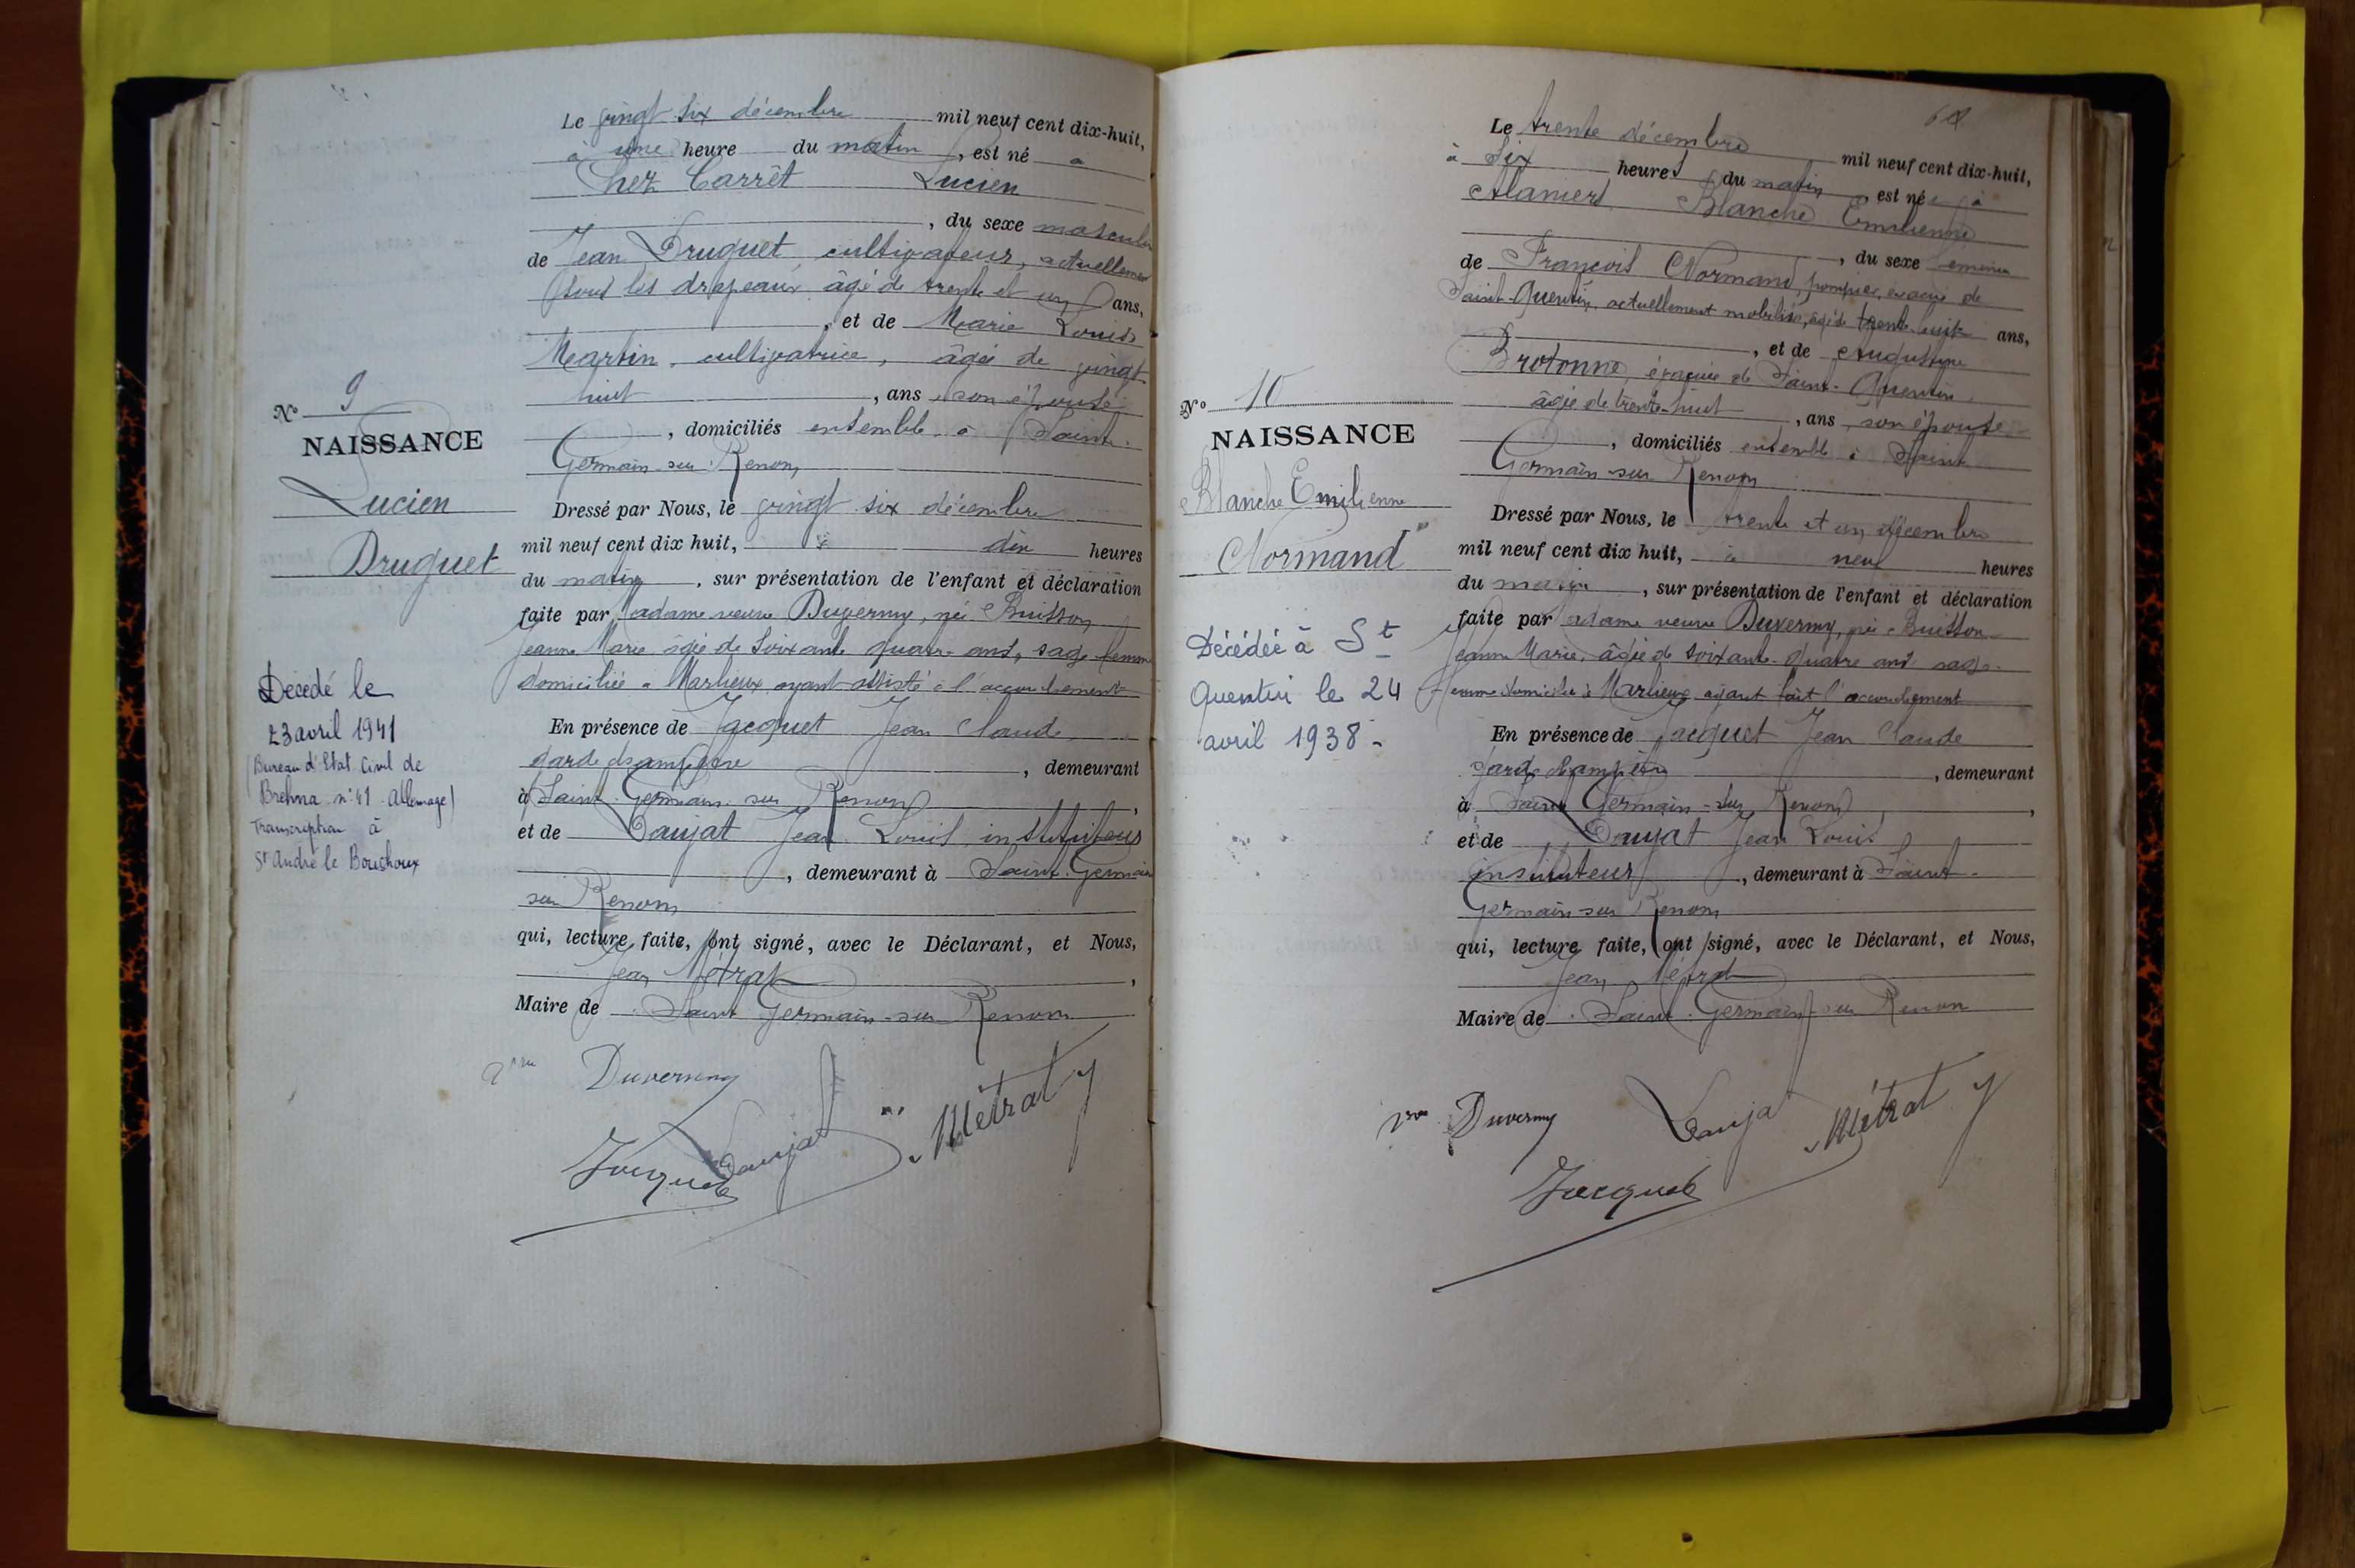 Le vingt six décembre mil neuf cent dix-huit,
à une heure du matin, est né à
Chez Carrêt Lucien
, du sexe masculin
de Jean Druguet cultivateur, actuellement
sous les drapeaux, âgé de trente et un ans,
, et de Marie Louise
Martin, cultivatrice, âgée de vingt
huit, ans son épouse
, domiciliés ensemble à Saint-
Germain-sur-Renon
N° 9
NAISSANCE
Lucien
Druguet
Dressé par Nous, le vingt six décembre
mil neuf cent dix huit, à dix heures
du matin, sur présentation de l'enfant et déclaration
faite par Madame veuve Duverny, née Buisson
Jeanne Marie âgée de soixante quatre ans, sage-femme
domiciliée à Marlieux ayant assisté à l'accouchement
En présence de Jacquet Jean Claude
Garde champêtre, demeurant
à Saint-Germain-sur Renon,
et de Daujat Jean Louis instituteur
, demeurant à Saint-Germain
sur Renon
qui, lecture faite, ont signé, avec le Déclarant, et Nous,
Jean Métrat,
Maire de Saint Germain-sur Renon
Décédé le
23 avril 1941
(Bureau d'Etat Civil de
Brehna n° 41 - Allemage)
Transcription à
St André le Bouchoux
Duverny
Jacquet Daujat Métrat
68
Le trente décembre mil neuf cent dix-huit,
à six heures du matin, est née à
Alaniers Blanche Emilienne
, du sexe féminin
de François Normand, pompier, évacué de
Saint-Quentin, actuellement mobilisé, âgé de trente huit ans,
, et de Augustine
Brotonne, évacuée de Saint-Quentin
âgée de trente-huit, ans son épouse
, domiciliés ensemble à Saint
Germain-sur Renon
N° 10
NAISSANCE
Blanche Emilienne
Normand
Dressé par Nous, le trente et un décembre
mil neuf cent dix huit, à neuf heures
du matin, sur présentation de l'enfant et déclaration
faite par Madame veuve Duverny, née Buisson
Jeanne Marie, âgée de soixante-quatre ans sage-
femme domiciliée à Marlieux ayant fait l'accouchement
En présence de Jacquet Jean Claude
garde champêtre, demeurant
à Saint Germain-sur Renon,
et de Daujat Jean Louis
instituteur, demeurant à Saint-
Germain-sur Renon
qui, lecture faite, ont signé, avec le Déclarant, et Nous,
Jean Métrat
Maire de Saint-Germain-sur Renon
Décédée à St
Quentin le 24
avril 1938 -
Vve Duverny Daujat Métrat
Jacquet